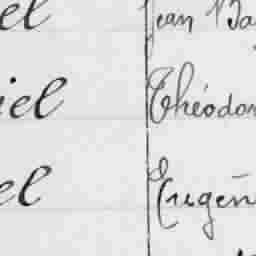 el Jean Ba
iel Théodor
el Eugèn